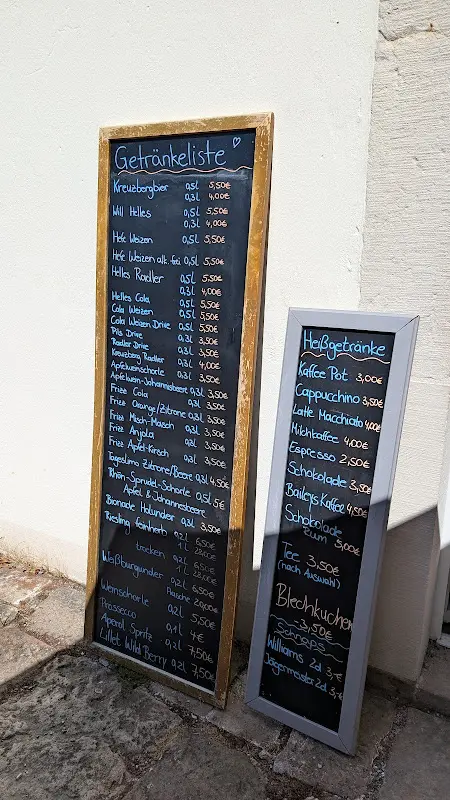 Getränkeliste
Kreuzbergbier 0,5L 5,50€
0,3L 4,00€
Will Helles 0,5L 5,50€
0,3L 4,00€
Hefe Weizen 0,5L 5,50€
Hefe Weizen alk. frei 0,5L 5,50€
Helles Radler 0,5L 5,50€
0,3L 4,00€
Helles Cola 0,5L 5,50€
Cola Weizen 0,5L 5,50€
Cola Weizen Drive 0,5L 5,50€
Pils Drive 0,3L 3,50€
Radler Drive 0,3L 3,50€
Kreuzberg Radler 0,3L 4,00€
Apfelweinschorle 0,3L 3,50€
Apfelwein-Johannisbeere 0,3L 3,50€
Fritz Cola 0,3L 3,50€
Fritz Orange/Zitrone 0,3L 3,50€
Fritz Misch-Masch 0,3L 3,50€
Fritz Anjola 0,3L 3,50€
Fritz Apfel-Kirsch 0,3L 3,50€
Tageslimo Zitrone/Beere 0,3L 4,50€
Rhön-Sprudel-Schorle 0,5L 5€
Apfel & Johannesbeere
Bionade Holunder 0,3L 3,50€
Riesling feinherb 0,2L 6,50€
1L 28,00€
trocken 0,2L 6,50€
1L 28,00€
Weißburgunder 0,2L 6,50€
Flasche 20,00€
Weinschorle 0,2L 5,50€
Prossecco 0,1L 4€
Aperol Spritz 0,2L 7,50€
Lillet Wild Berry 0,2L 7,50€
Heißgetränke
Kaffee Pot 3,00€
Cappucchino 3,50€
Latte Macchiato 4,00€
Milchkaffee 4,00€
Espresso 2,50€
Schokolade 3,50€
Baileys Kaffee 4,50€
Schokolade
Rum 3,00€
Tee 3,50€
(nach Auswahl)
Blechkuchen
-3,50€
Schnaps
Williams 2cl 3,-€
Jägermeister 2cl 3,-€